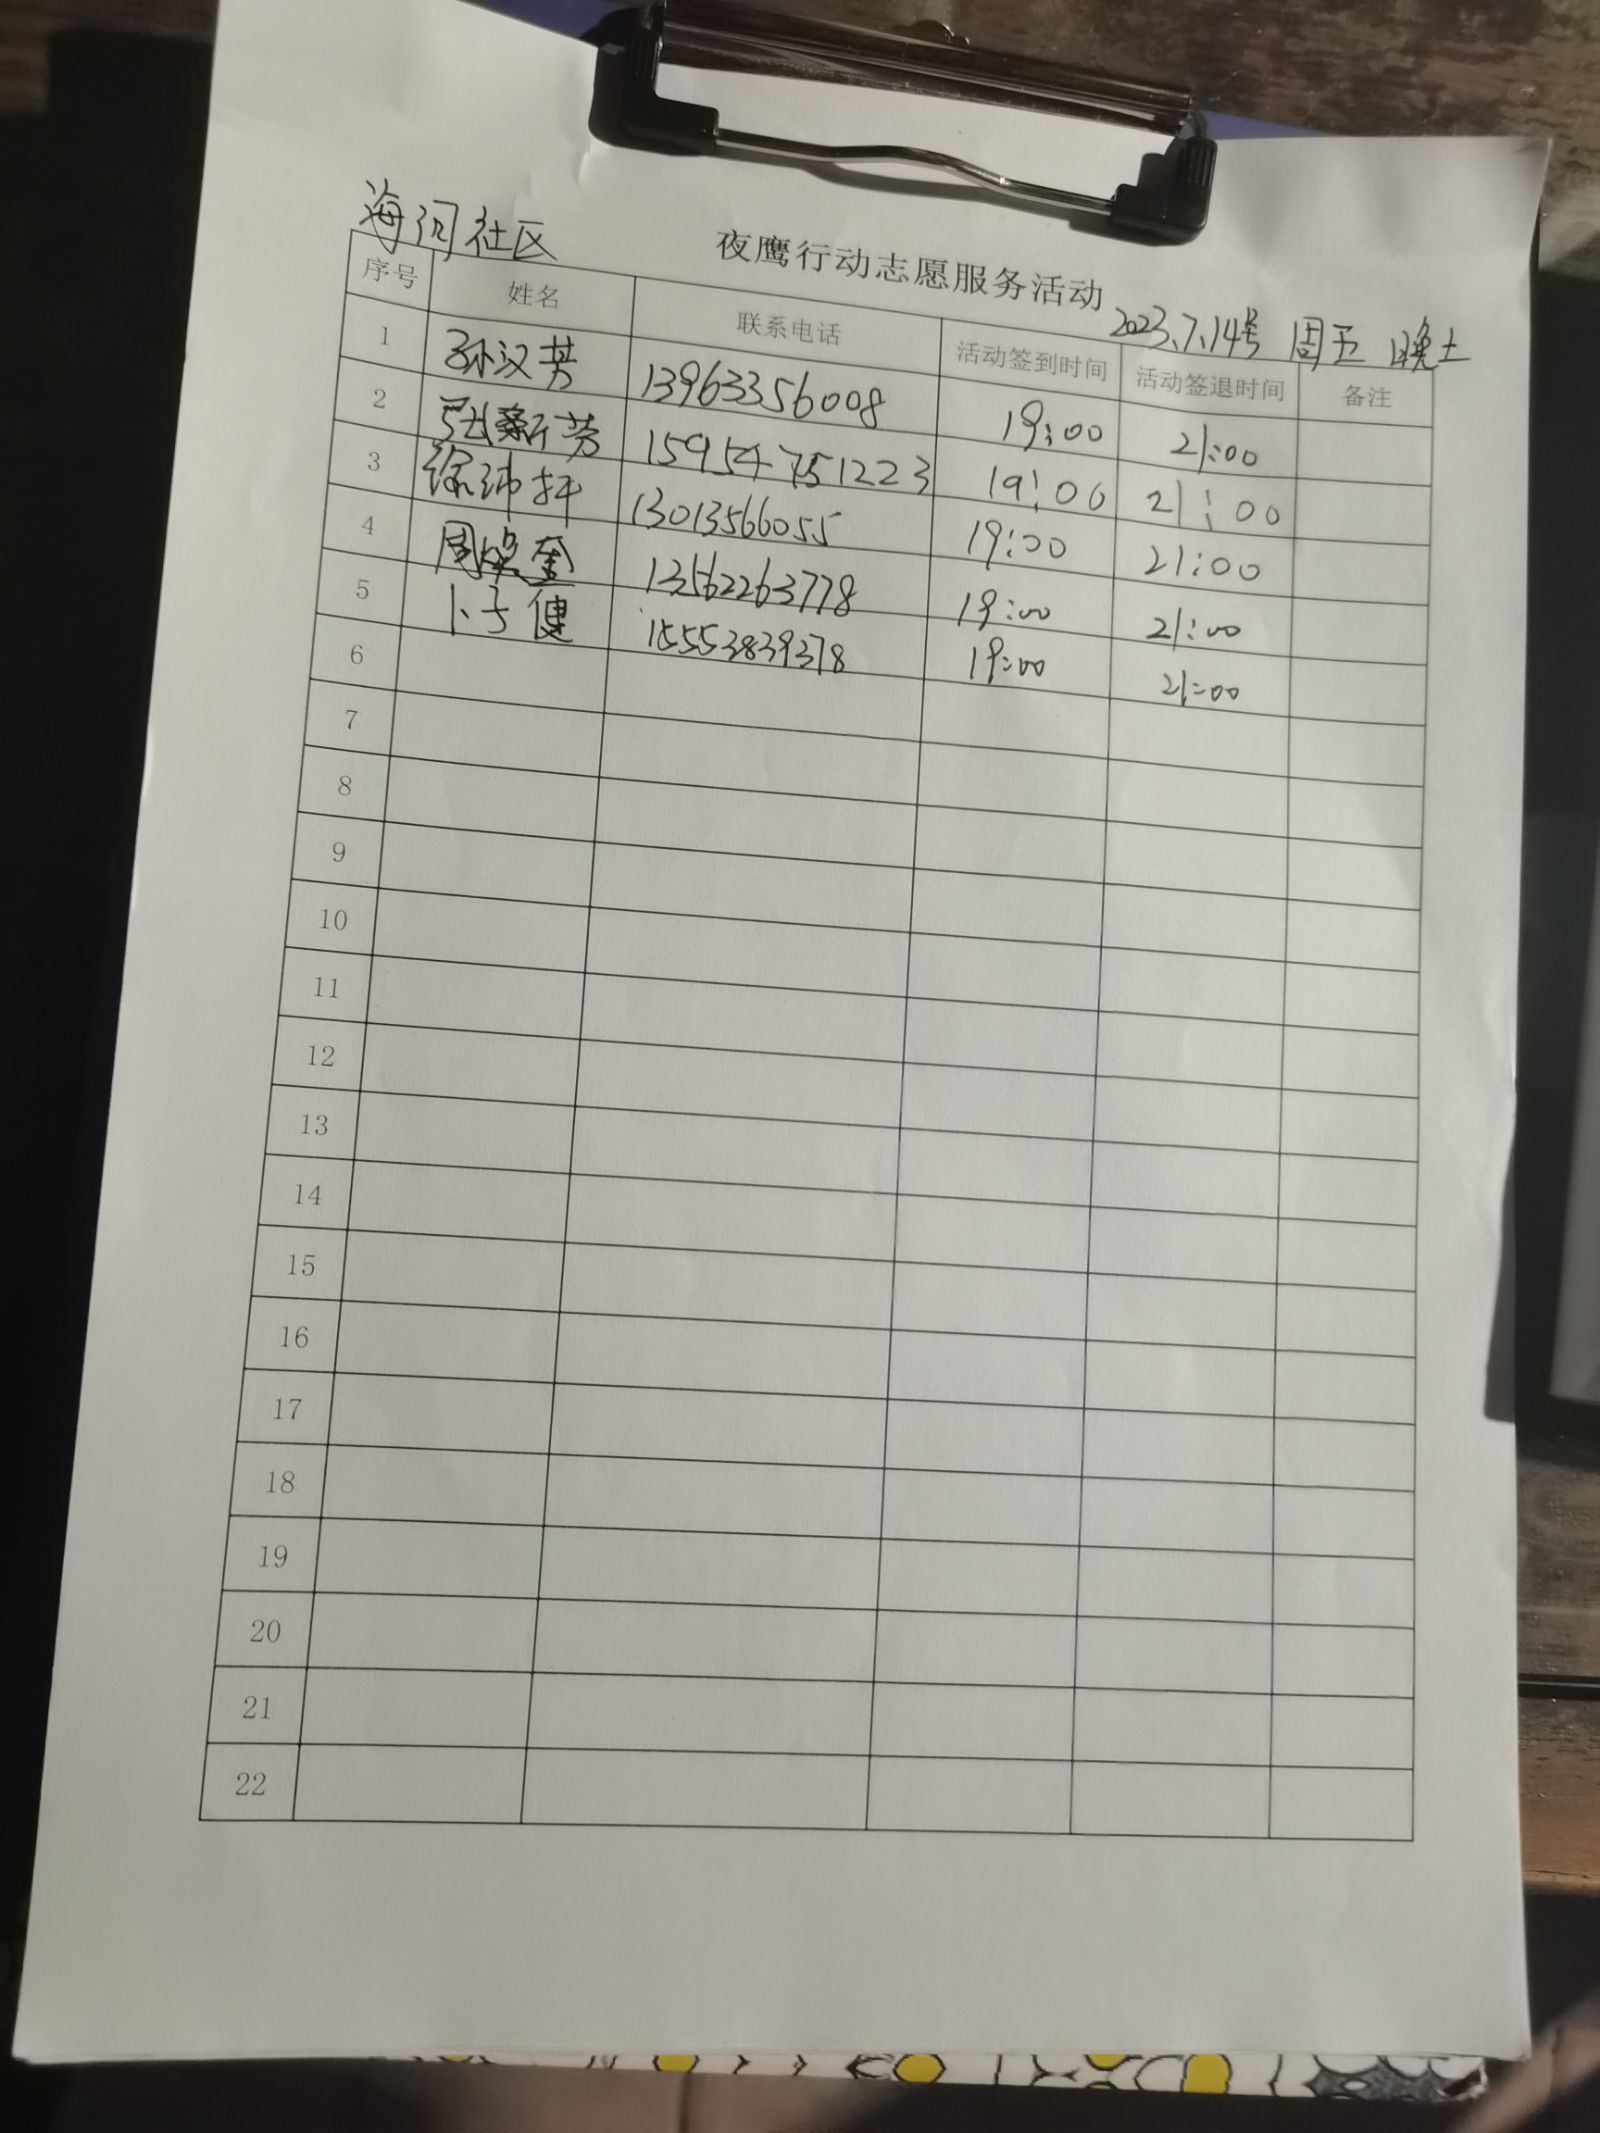 海河社区
夜鹰行动志愿服务活动
2023.7.14号 周五 晚上
序号 姓名 联系电话 活动签到时间 活动签退时间 备注
1 孙汉芳 13963356008 19:00 21:00
2 张新芳 15954751223 19:00 21:00
3 徐 13013566055 19:00 21:00
4 周 13562263778 19:00 21:00
5 卜子健 15553839378 19:00 21:00
6
7
8
9
10
11
12
13
14
15
16
17
18
19
20
21
22